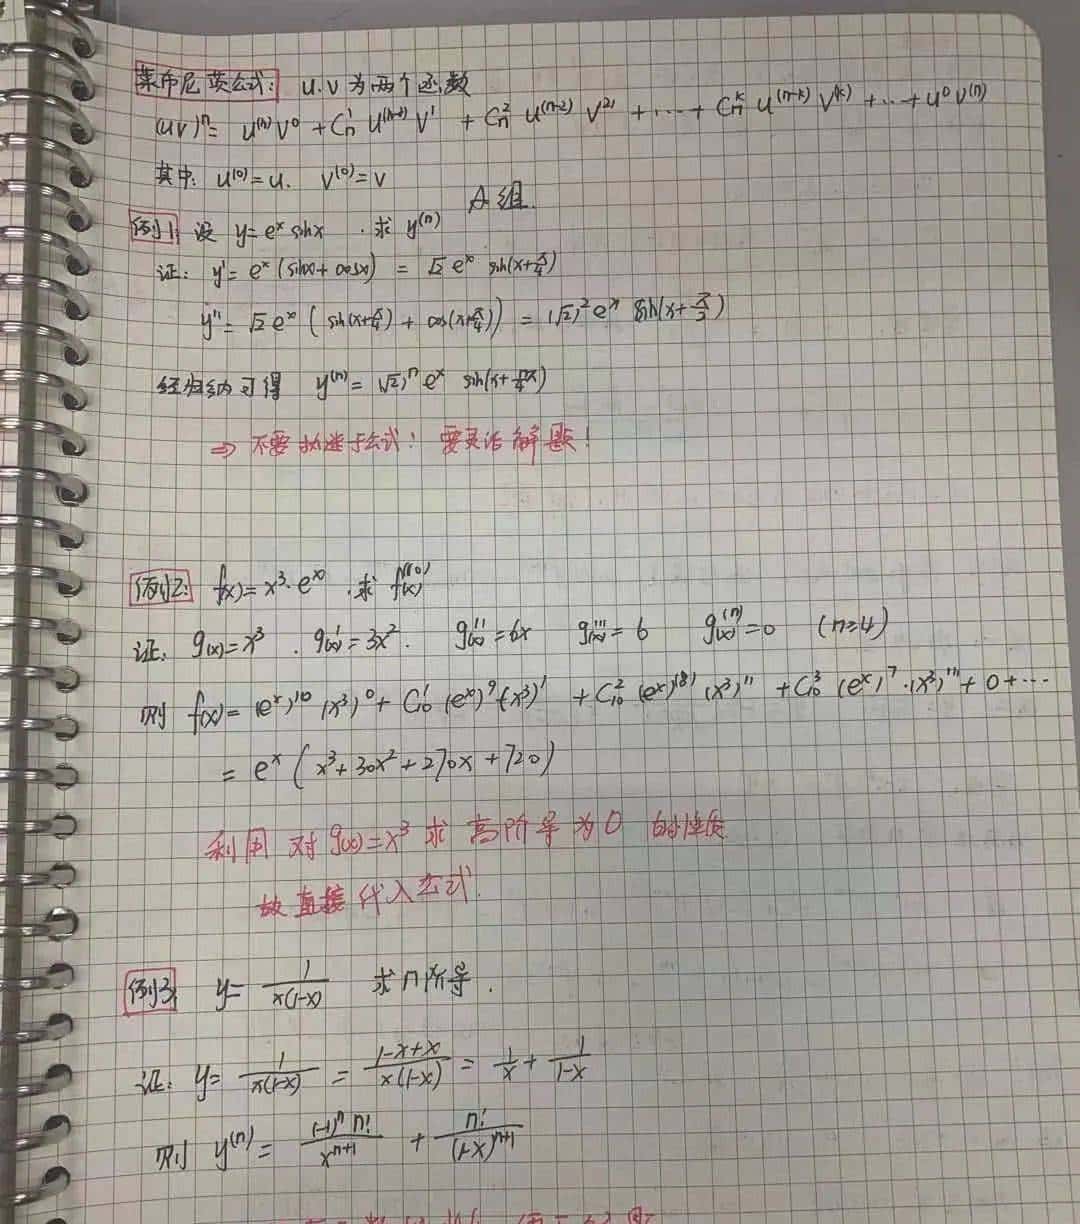 莱布尼茨公式: u.v 为两个函数
(uv)ⁿ = u⁽ⁿ⁾v⁰ + Cₙ¹ u⁽ⁿ⁻¹⁾ v' + Cₙ² u⁽ⁿ⁻²⁾ v²' + ⋯ + Cₙᵏ u⁽ⁿ⁻ᵏ⁾ v⁽ᵏ⁾ + ⋯ + u⁰ v⁽ⁿ⁾
其中: u⁽⁰⁾=u. v⁽⁰⁾=v
A组.
例1 设 y=eˣ sinx . 求 y⁽ⁿ⁾
证: y'= eˣ (sinx + cosx) = √2 eˣ sin(x+π/4)
y''= √2 eˣ ( sin(x+π/4) + cos(x+π/4)) = (√2)² eˣ sin(x+π/2)
经归纳可得 y⁽ⁿ⁾ = (√2)ⁿ eˣ sin(x+nπ/4)
⇒ 不要拘泥于公式! 要灵活解题!
例2: f(x)=x³·eˣ . 求 f⁽¹⁰⁾(x)
证: g(x)=x³ . g'(x)=3x². g''(x)=6x g'''(x)=6 g⁽ⁿ⁾(x)=0 (n≥4)
则 f(x)= (eˣ)¹⁰ (x³)⁰ + C₁₀¹ (eˣ)⁹ (x³)' + C₁₀² (eˣ)⁽⁸⁾ (x³)'' + C₁₀³ (eˣ)⁷·(x³)''' + 0 + ⋯
= eˣ ( x³+30x²+270x+720)
利用 对 g(x)=x³ 求 高阶导为0 的性质
故直接代入公式.
例3 y= 1/x(1-x) 求n阶导.
证: y= 1/x(1-x) = 1-x+x/x(1-x) = 1/x + 1/1-x
则 y⁽ⁿ⁾ = (-1)ⁿ n!/xⁿ⁺¹ + n!/(1-x)ⁿ⁺¹